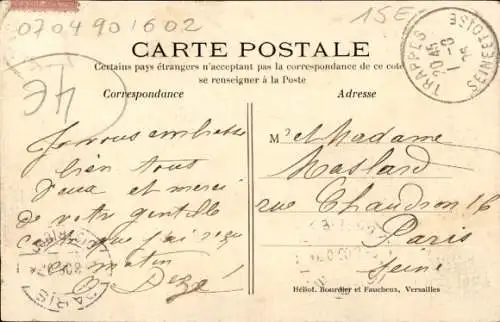 0704901602
15E
4E
CARTE POSTALE
Certains pays étrangers n'acceptent pas la correspondance de ce coté
se renseigner à la Poste
Correspondance
Adresse
TRAPPES
SEINE-ET-OISE
Je vous embrasse
bien tous
Deux et merci
de votre gentille
carte que j'ai reçu
ce matin
M r et Madame
Maslard
rue Chaudron 16
Paris
Seine
PARIS
Héliot. Bourdier et Faucheux, Versailles